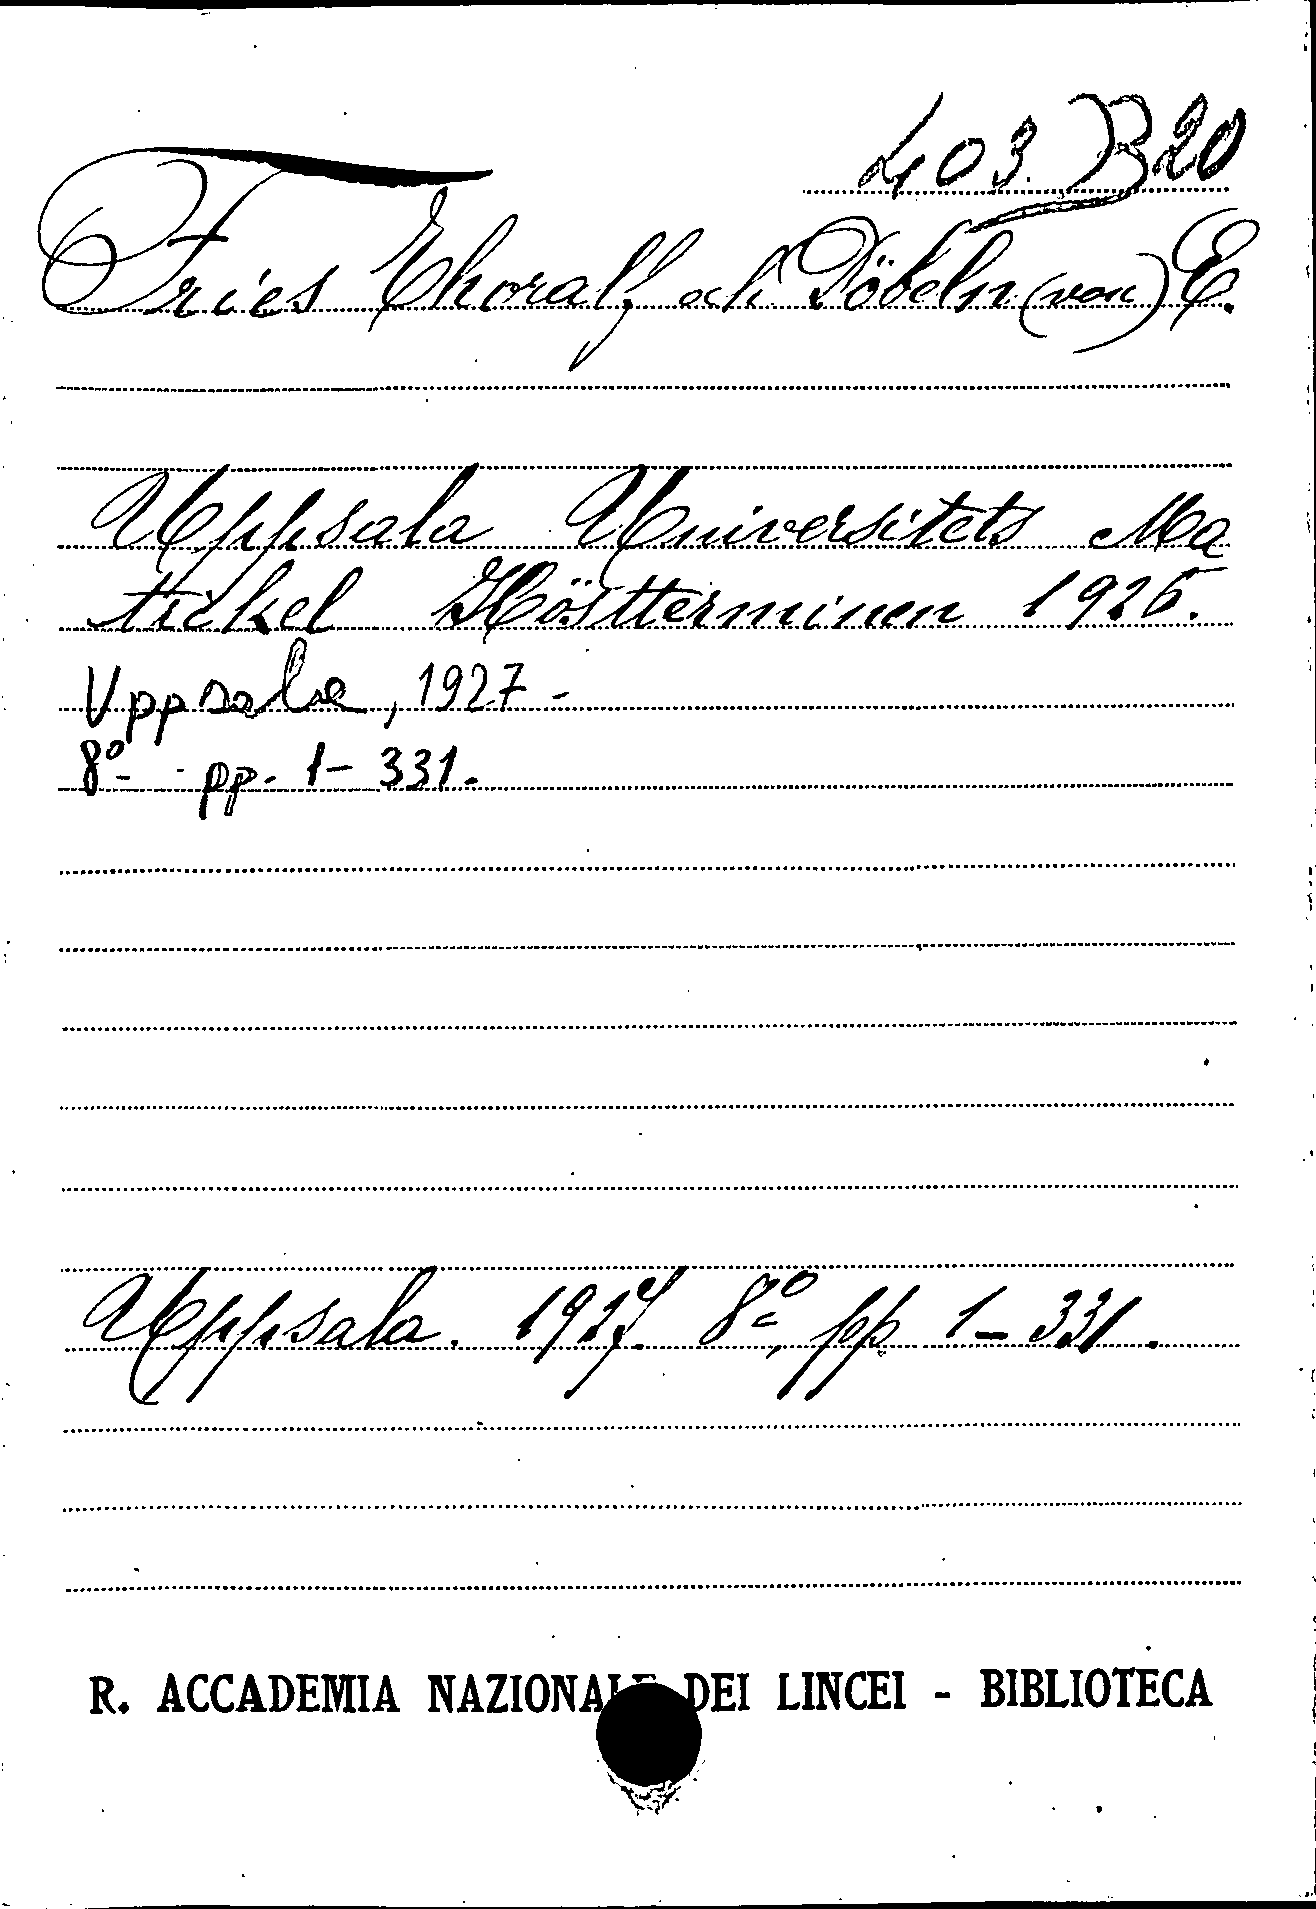 403. B 20
Fries Thoralf och Döbeln (von) E.
Uppsala Universitets Ma
trikel Höstterminen 1926.
Uppsala, 1927 -
8º - pp. 1 - 331.
Uppsala. 1927. 8º, pp 1 - 331.
R. ACCADEMIA NAZIONALE DEI LINCEI - BIBLIOTECA